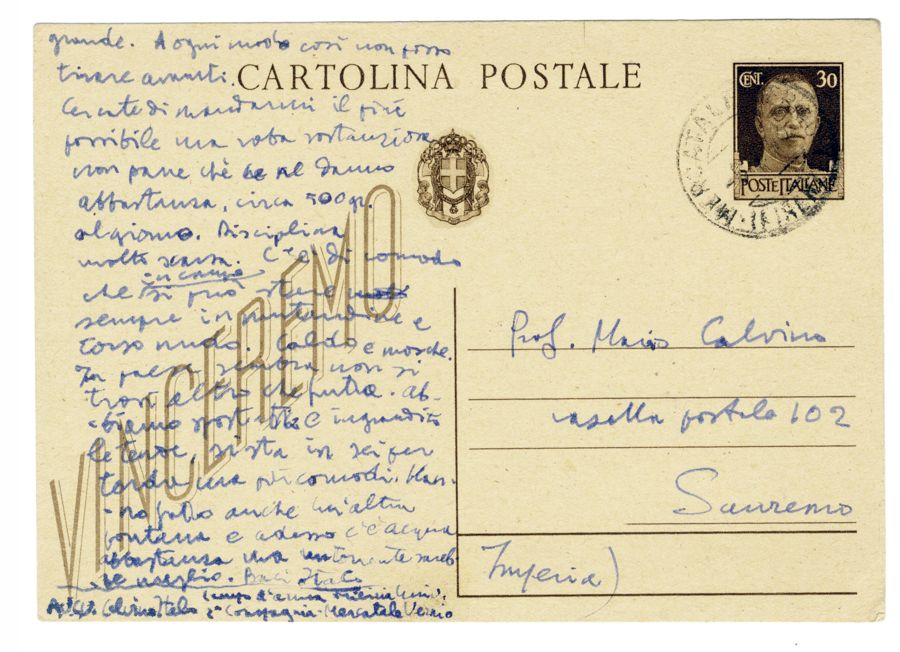 grande. A ogni modo così non posso
tirare avanti.
CARTOLINA POSTALE
Cercate di mandarmi il più
possibile ma roba sostanziosa
non pane chè ce ne danno
abbastanza, circa 500 gr.
al giorno. Disciplina
molto scarsa. C'è di comodo
in campo
che si può stare
sempre in mutandine e
torso nudo. Caldo e mosche.
In paese sembra non si
trovi altro che frutta. Ab-
biamo spostato e ingrandito
le tende, si sta in sei per
tenda ma più comodi. Han-
no fatto anche un'altra
fontana e adesso c'è acqua
abbastanza ma un torrente sareb-
be meglio. Baci Italo
Calvino Italo
2ª Compagnia - Mercatale Vernio
VINCEREMO
CENT. 30
POSTE ITALIANE
Prof. Mario Calvino
casella postale 102
Sanremo
Imperia)